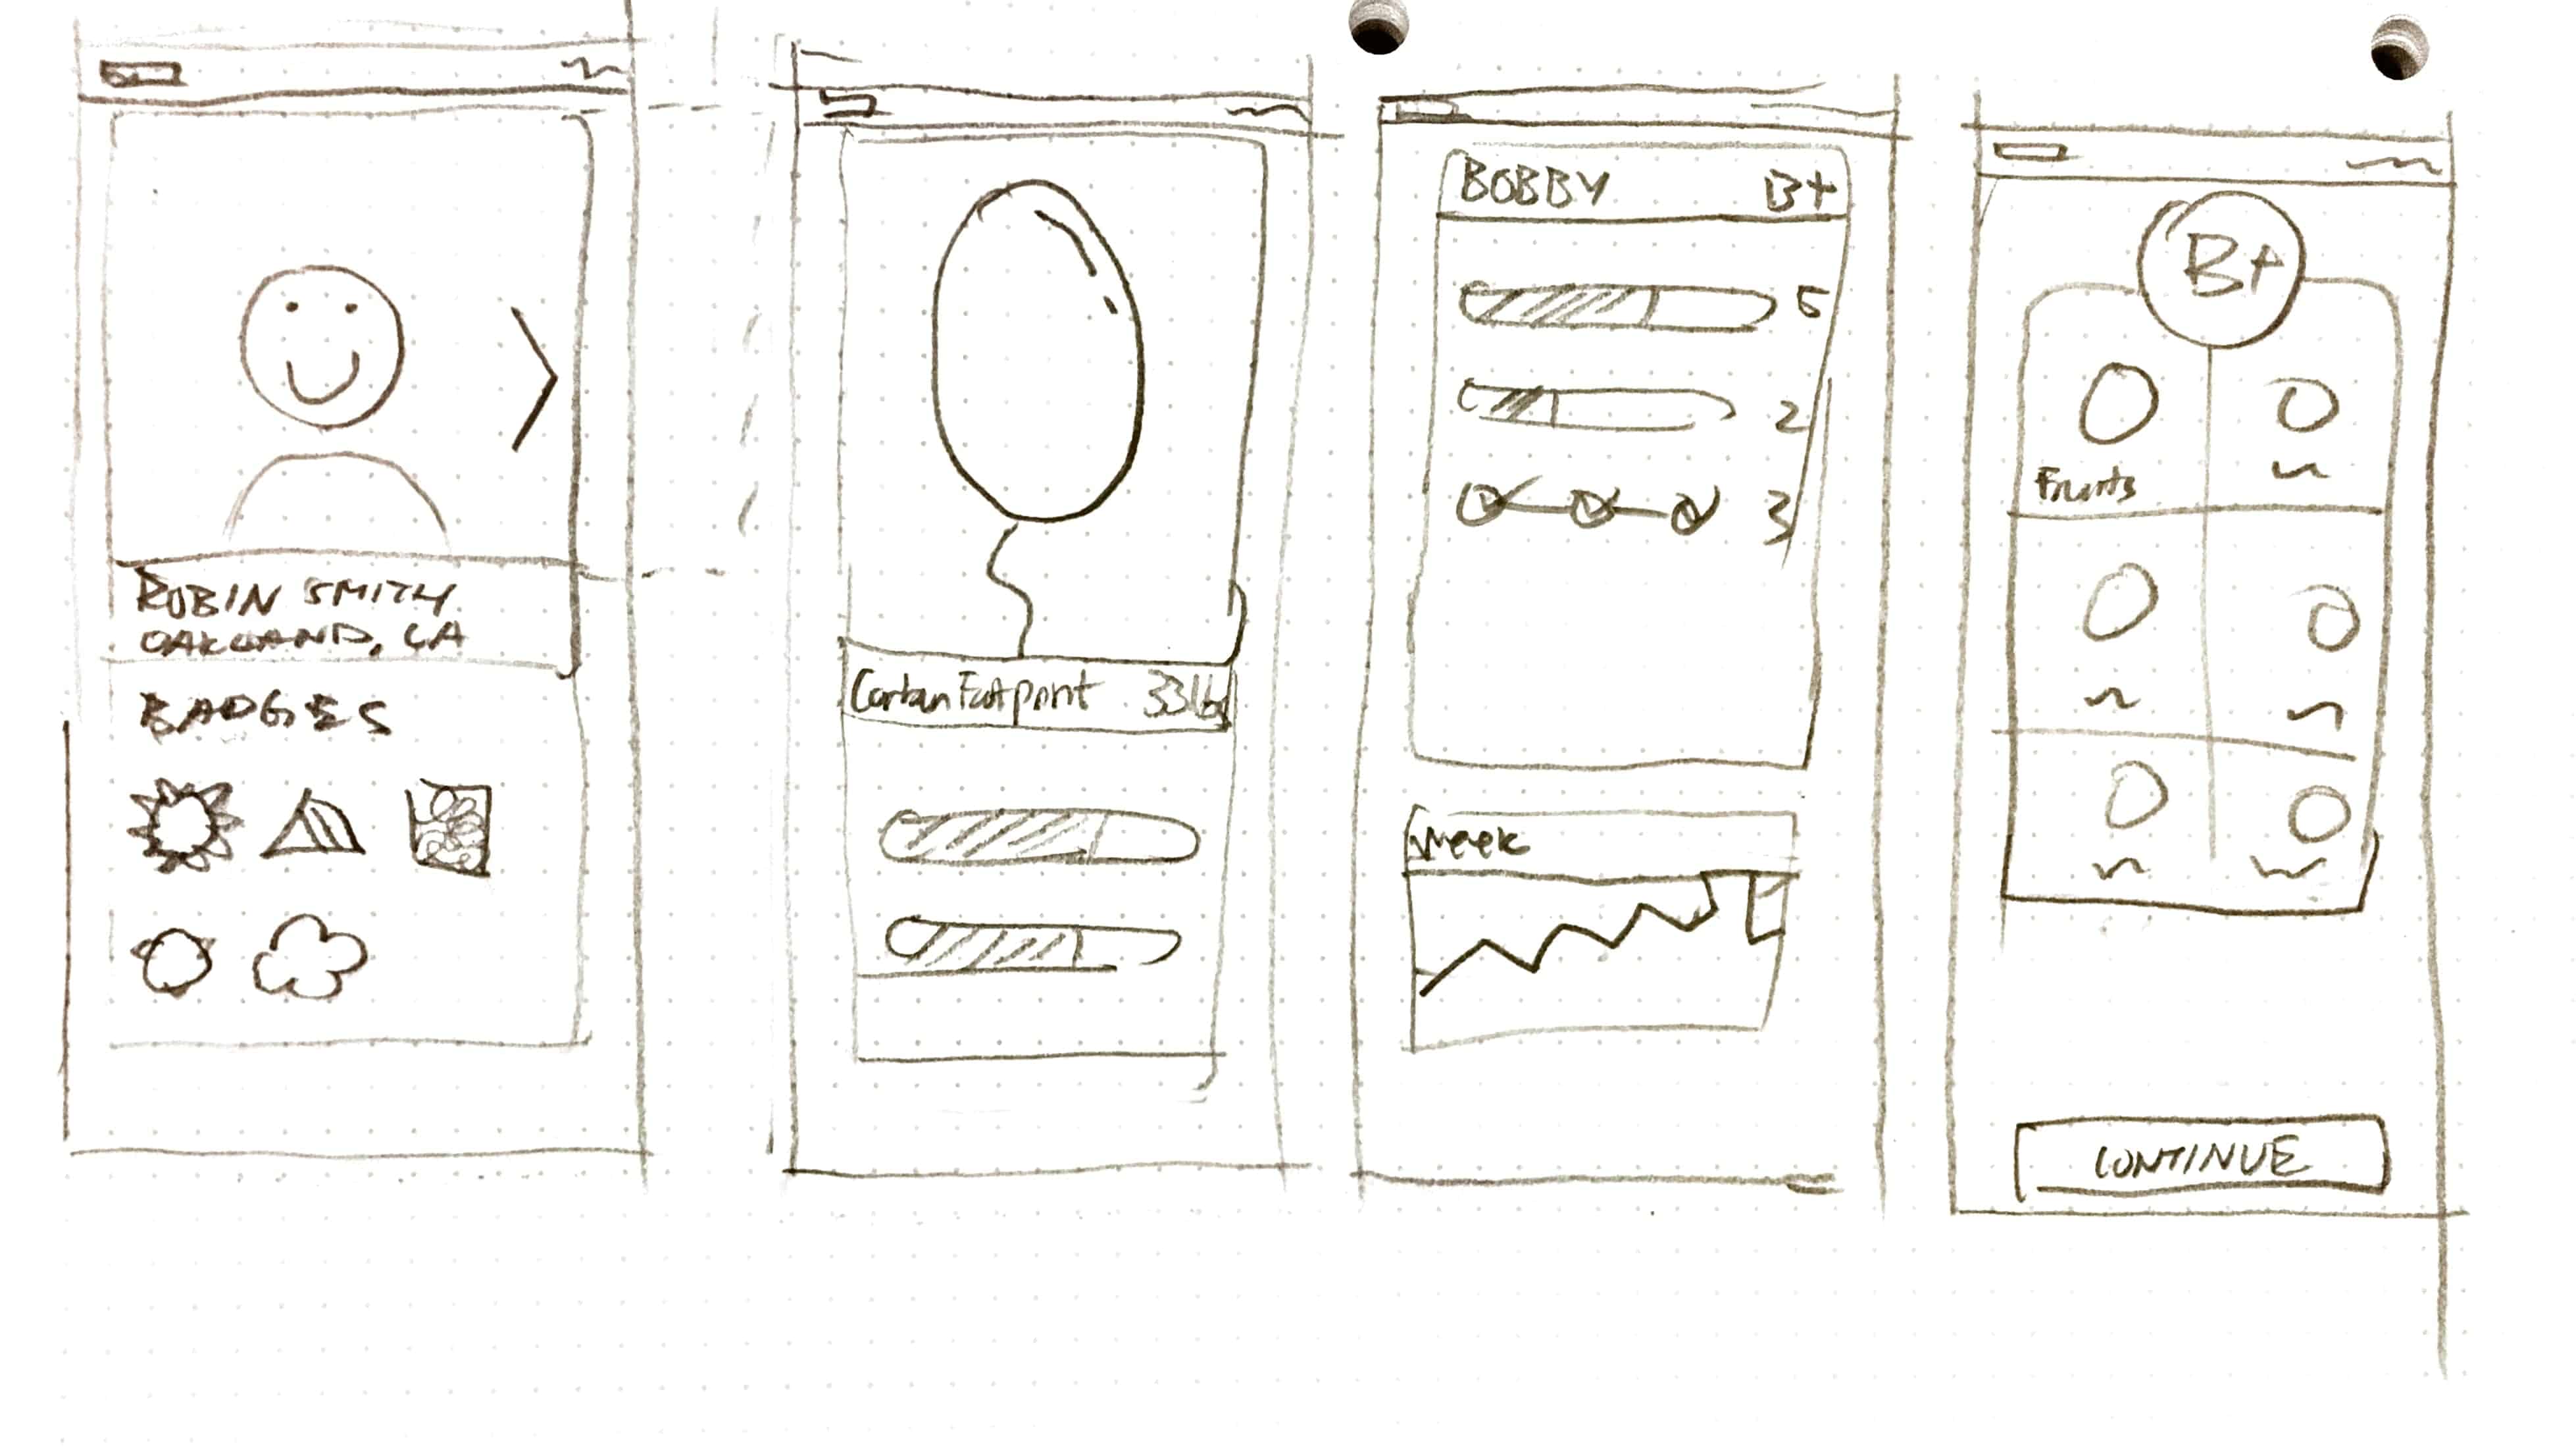 ROBIN SMITH
OAKLAND, CA
BADGES
Carbon Footprint 33lbs
BOBBY B+
5
2
3
Week
B+
Fruits
CONTINUE